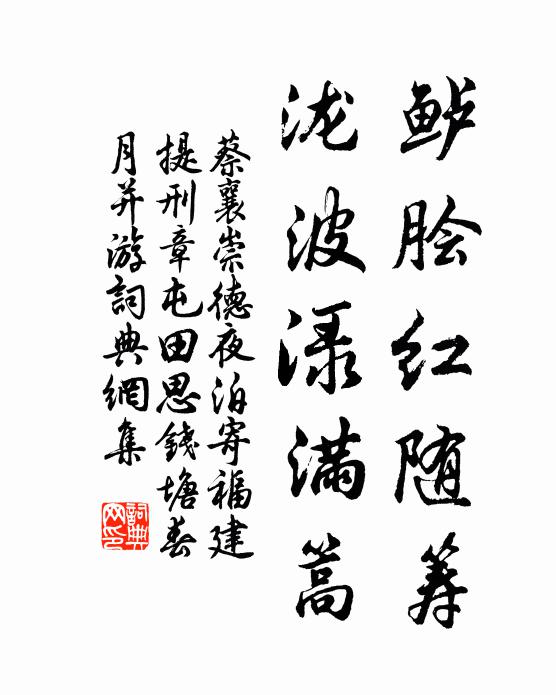 鲈脍红随箸
泷波渌满篙
蔡襄崇德夜泊寄福建
提刑章屯田思錢塘春
月并游詞典網集
詞典
网印